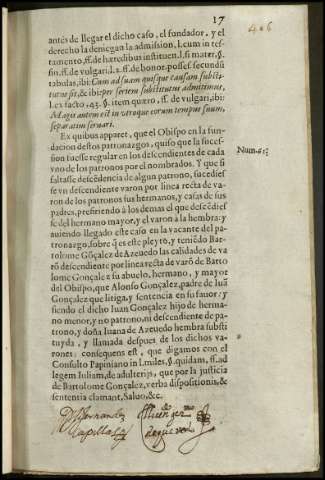 17
406
antes de llegar el dicho caso, el fundador, y el
derecho la deniegan la admission, l. cum in tes-
tamento, ff. de hæredibus instituen. l. si mater, §.
fin. ff. de vulgari, l. 2. ff. de bonor. posses. secundũ
tabulas, ibi: Cum ad suam quisque causam substi-
tutus sit, & ibi: per seriem substitutus admittitur,
l. ex facto, 43. §. item quæro, ff. de vulgari, ibi:
Magis autem est in utroque eorum tempus suum,
separatim seruari.
Ex quibus apparet, que el Obispo en la fun-
dacion destos patronazgos, quiso que la sucess-
sion fuesse regular en los descendientes de cada
vno de los patronos por el nombrados. Y que si
faltasse descẽdencia de algun patrono, sucedies-
se vn descendiente varon por linea recta de va-
ron de los patronos sus hermanos, y casas de sus
padres, prefiriendo à los demas el que descẽdies-
se del hermano mayor, y el varon à la hembra: y
auiendo llegado este caso en la vacante del pa-
tronazgo, sobre q̃ es este pleyto, y teniẽdo Bar-
tolome Gõçalez de Azeuedo las calidades de va-
rõ descendiente por linea recta de varõ de Barto
lome Gonçalez su abuelo, hermano, y mayor
del Obispo, que Alonso Gonçalez, padre de Iuã
Gonçalez que litiga, y sentencia en su fauor: y
siendo el dicho Iuan Gonçalez hijo de herma-
no menor, y no patrono, ni descendiente de pa-
trono, y doña Iuana de Azeuedo hembra substi
tuyda, y llamada despues de los dichos varo-
nes: consequens est, que digamos con el
Consulto Papiniano in l. miles, §. quidam, ff. ad
legem Iuliam, de adulterijs, que por la justicia
de Bartolome Gonçalez, verba dispositionis, &
sententia clamant, Saluo, &c.
Num. 65